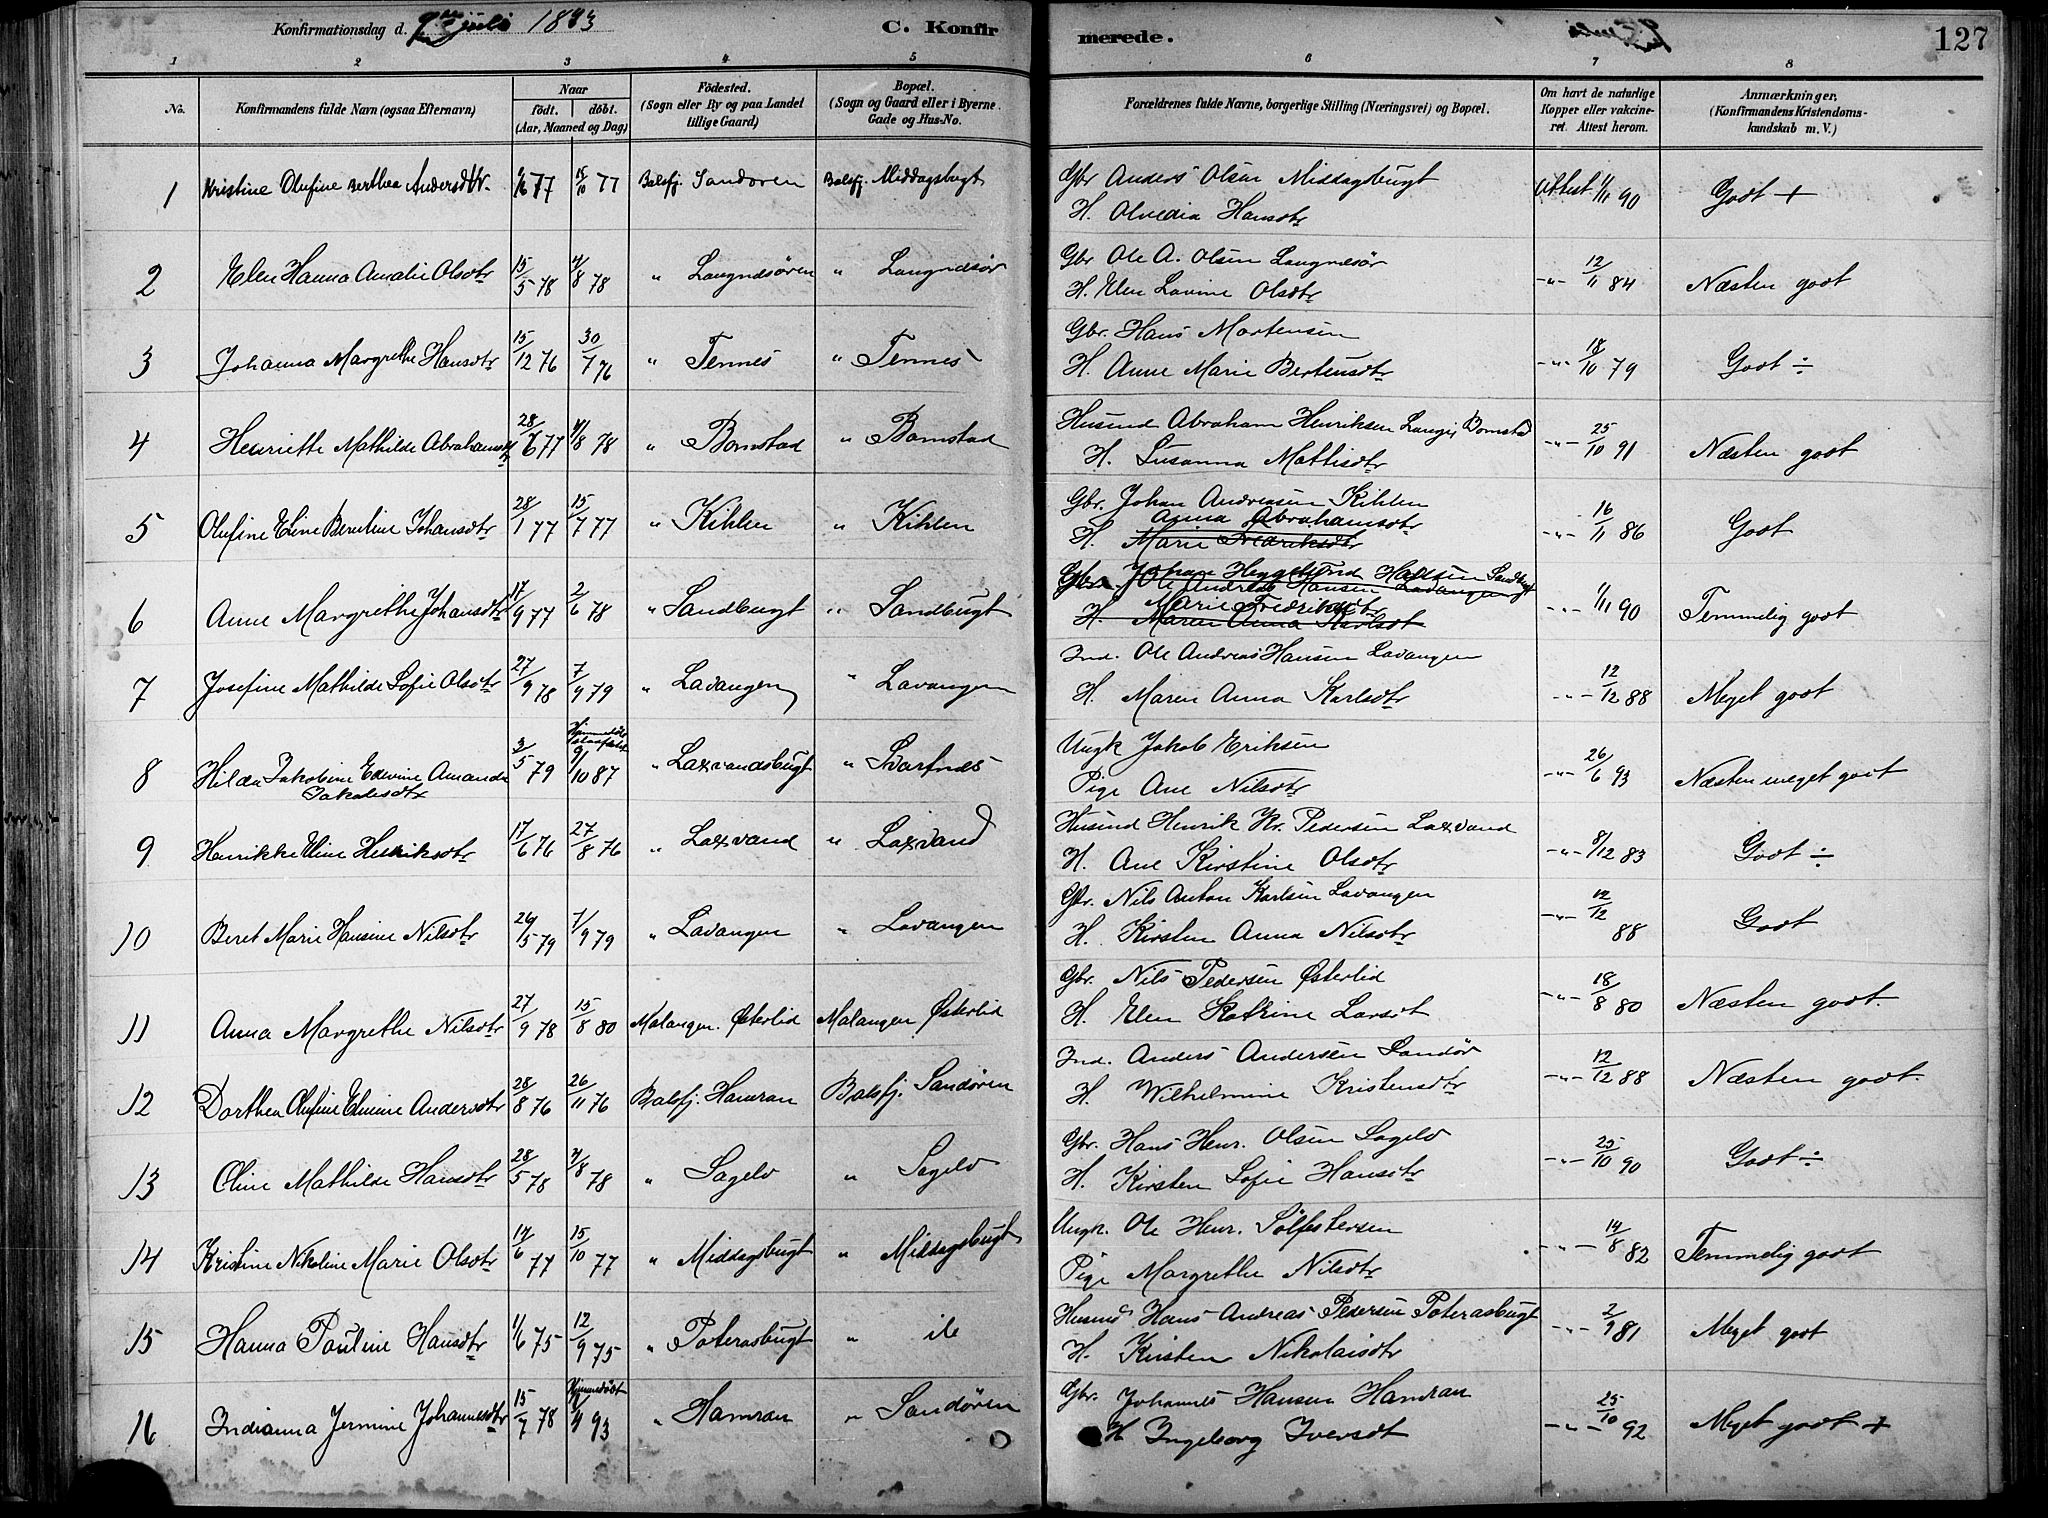 Konfirmationsdag d. 9de juli 1893 C. Konfirmerede. 127
1 2 3 4 5 6 7 8
No. Konfirmandens fulde Navn (ogsaa Efternavn) Naar født. døbt. (Aar, Maaned og Dag) Fødested. (Sogn eller By og paa Landet tillige Gaard) Bopæl. (Sogn og Gaard eller i Byerne Gade og Hus-No. Forældrenes fulde Navne, borgerlige Stilling (Næringsvei) og Bopæl. Om havt de naturlige Kopper eller vakcineret. Attest herom. Anmærkninger, (Konfirmandens Kristendomskundskab m. V.)
1 Kristine Olufine Berthea Andersdtr. 77 15/10 77 Balsfj. Sandøren Balsfj. Middagsbugt Gbr Anders Olsen Middagsbugt Attest 1/11 90 Godt +
H. Olvedia Hansdtr
2 Elen Hanna Amalie Olsdtr 15/5 78 4/8 78 " Langndsøren " Langndsør Gbr Ole A. Olsen Langnesør -"- 12/11 84 Næsten godt
H. Elen Lavine Olsdtr
3 Johanna Margrethe Hansdtr 15/12 76 30/7 76 " Tennes " Tennes Gbr. Hans Mortensen -"- 18/10 79 Godt ÷
H. Anne Marie Bertensdtr
4 Henriette Mathilde Abrahamsdtr 28/6 77 4/8 78 " Bomstad " Bomstad Husmd Abraham Henriksen Bomstad -"- 25/10 91 Næsten godt
H. Susanna Mattisdtr
5 Olufine Eline Berntine Johansdtr 28/1 77 15/7 77 " Kihlen " Kihlen Gbr. Johan Andreasen Kihlen -"- 16/11 86 Godt
Anna Abrahamsdtr
H. Marie Fredriksdtr
6 Anne Margrethe Johansdtr 17/9 77 2/6 78 " Sandbugt " Sandbugt Gbr. Johan Heggelund Hansen Sandbugt -"- 1/11 90 Temmelig godt
Ole Andreas Hansen Lavangen
Marie Fredriksdtr
H. Maren Anna Karlsdt
7 Josefine Mathilde Sofie Olsdtr 27/9 78 7/9 79 " Lavangen " Lavangen Ind. Ole Andreas Hansen Lavangen -"- 12/12 88 Meget godt
H. Maren Anna Karlsdtr
8 Hilda Jakobine Edevine Amanda Jakobsdtr 3/5 79 Hjemmedøbt 9/10 87 " Laxvandsbugt " Svartnes Ungk Jakob Eriksen -"- 26/6 93 Næsten meget godt
Pige Ane Nilsdtr
9 Henrikke Eline Henriksdtr 17/6 76 27/8 76 " Laxvand " Laxvand Husmd Henrik Kr. Pedersen Laxvand -"- 8/12 83 Godt ÷
H. Ane Kirstine Olsdtr
10 Beret Marie Hansine Nilsdtr 26/5 79 7/9 79 " Lavangen " Lavangen Gbr. Nils Anton Karlsen Lavangen -"- 12/12 88 Godt
H. Kirsten Anna Nilsdtr
11 Anna Margrethe Nilsdtr 27/9 78 15/8 80 Malangen. Østerlid Malangen Østerlid Gbr. Nils Pedersen Østerlid -"- 18/8 80 Næsten godt.
H. Elen Katrine Larsdt
12 Dorthea Olufine Elmine Andersdtr 28/8 76 26/11 76 Balsfj. Hamran Balsfj. Sandøren Ind. Anders Andersen Sandør -"- 12/12 88 Næsten godt.
H. Wilhelmine Kristensdtr
13 Oline Mathilde Hansdtr 28/5 78 4/8 78 " Sagelv " Sagelv Gbr. Hans Henr. Olsen Sagelv -"- 25/10 90 Godt ÷
H. Kirsten Sofie Hansdtr
14 Kristine Nikoline Marie Olsdtr 17/6 77 15/10 77 " Middagsbugt " Middagsbugt Ungk. Ole Henr. Sølfestersen -"- 14/8 82 Temmelig godt
Pige Margrethe Nilsdtr
15 Hanna Pauline Hansdtr 1/6 75 12/9 75 " Poterasbugt " Husmd Hans Andreas Pedersen Poterasbugt -"- 2/9 81 Meget godt
H. Kirsten Nikolaisdtr
16 Indianna Jermine Johannesdtr 15/7 78 Hjemmedøbt 4 93 " Hamran " Sandøren Gbr. Johannes Hansen Hamran -"- 25/10 92 Meget godt +
H Ingeborg Iversdt